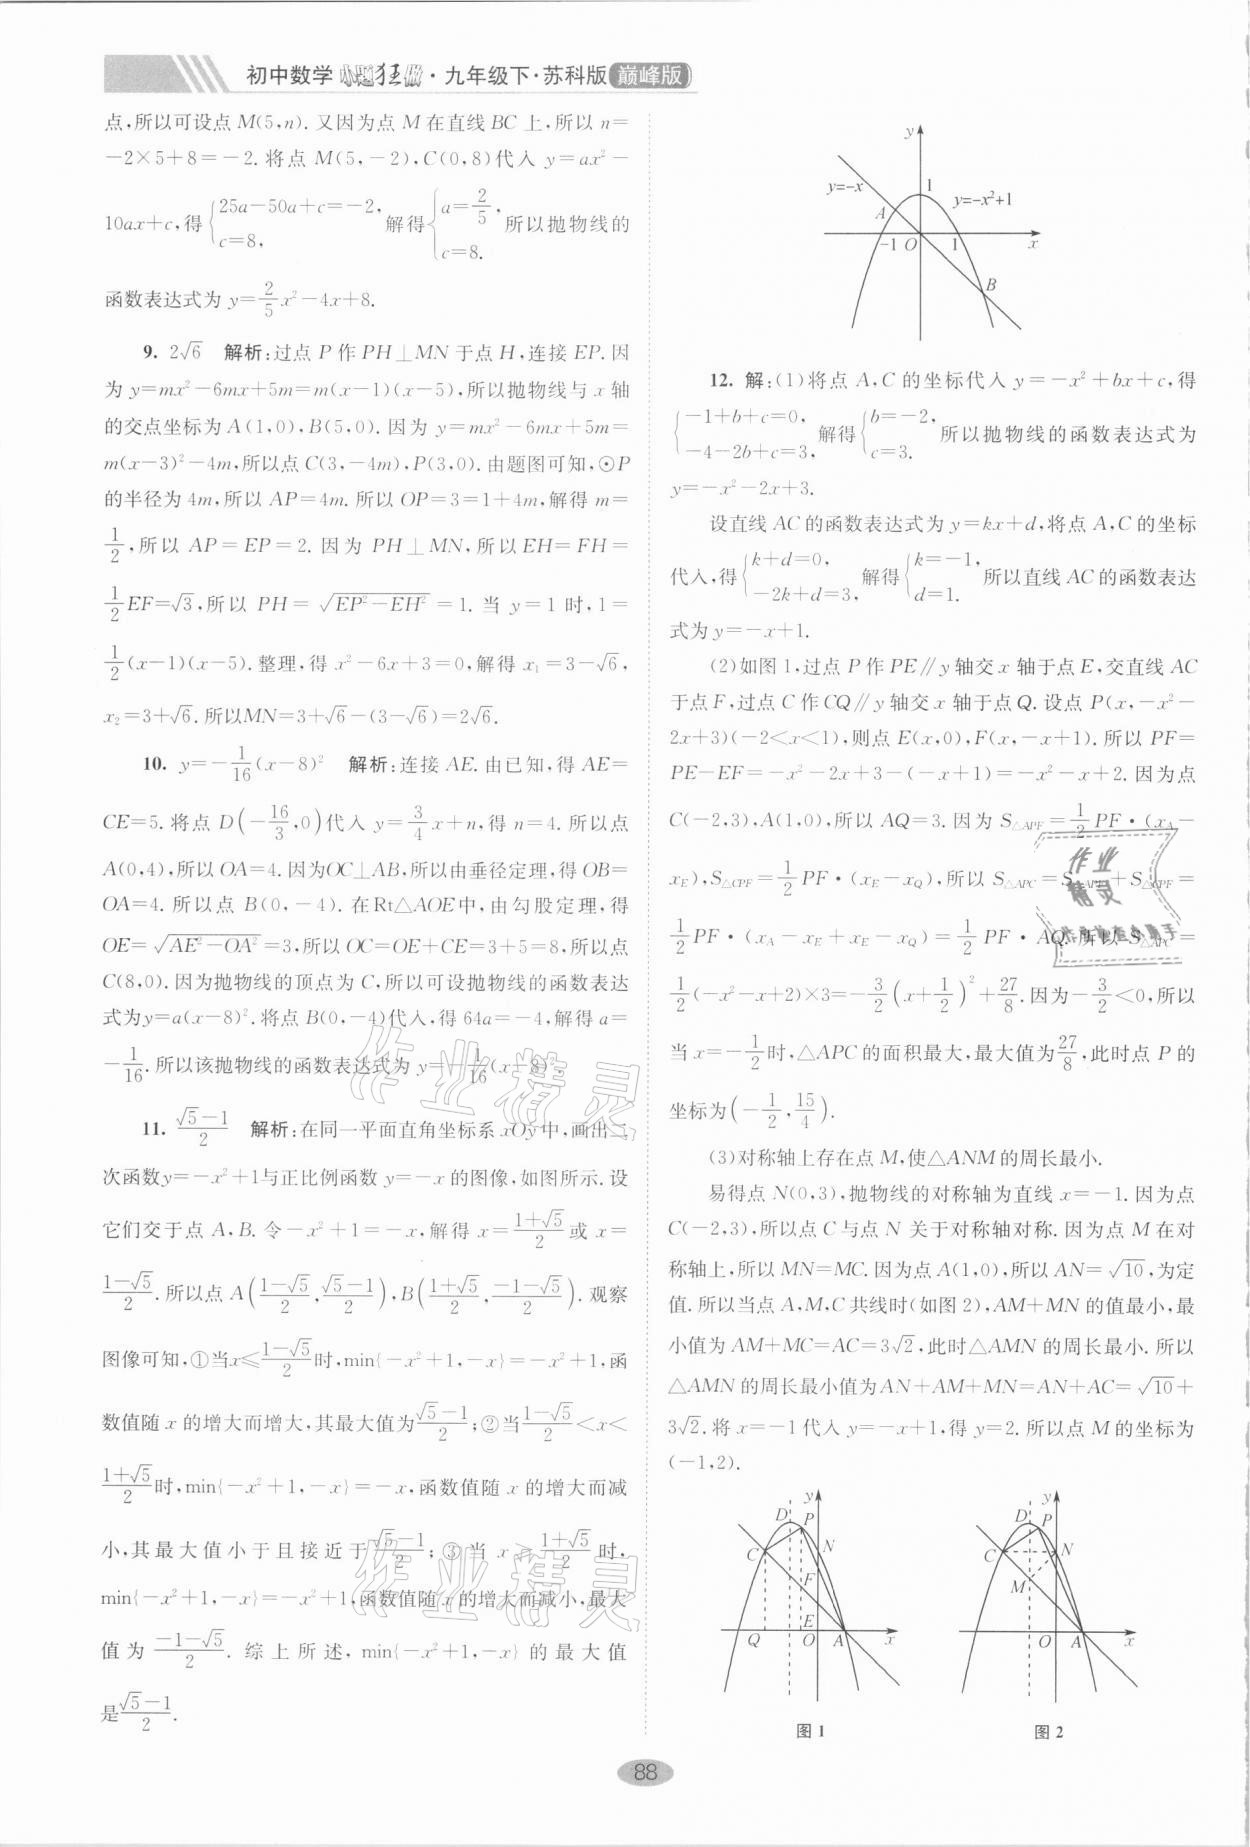 初中数学 小题狂做·九年级下·苏科版 巅峰版
点,所以可设点 M(5,n). 又因为点 M 在直线 BC 上,所以 n=
-2×5+8=-2. 将点 M(5,-2),C(0,8)代入 y=ax²-
10ax+c,得{25a-50a+c=-2, c=8, 解得{a=2/5, c=8. 所以抛物线的
函数表达式为 y=2/5x²-4x+8.
9. 2√6 解析:过点 P 作 PH⊥MN 于点 H,连接 EP. 因
为 y=mx²-6mx+5m=m(x-1)(x-5),所以抛物线与 x 轴
的交点坐标为 A(1,0),B(5,0). 因为 y=mx²-6mx+5m=
m(x-3)²-4m,所以点 C(3,-4m),P(3,0). 由题图可知,⊙P
的半径为 4m,所以 AP=4m. 所以 OP=3=1+4m,解得 m=
1/2,所以 AP=EP=2. 因为 PH⊥MN,所以 EH=FH=
1/2EF=√3,所以 PH=√(EP²-EH²)=1. 当 y=1 时,1=
1/2(x-1)(x-5). 整理,得 x²-6x+3=0,解得 x₁=3-√6,
x₂=3+√6. 所以MN=3+√6-(3-√6)=2√6.
10. y=-1/16(x-8)² 解析:连接 AE. 由已知,得 AE=
CE=5. 将点 D(-16/3,0)代入 y=3/4x+n,得 n=4. 所以点
A(0,4),所以 OA=4. 因为OC⊥AB,所以由垂径定理,得 OB=
OA=4. 所以点 B(0,-4). 在Rt△AOE中,由勾股定理,得
OE=√(AE²-OA²)=3,所以 OC=OE+CE=3+5=8,所以点
C(8,0). 因为抛物线的顶点为 C,所以可设抛物线的函数表达
式为y=a(x-8)². 将点 B(0,-4)代入,得 64a=-4,解得 a=
-1/16. 所以该抛物线的函数表达式为 y=-1/16(x-8)².
11. (√5-1)/2 解析:在同一平面直角坐标系 xOy中,画出二
次函数y=-x²+1与正比例函数 y=-x 的图像,如图所示. 设
它们交于点 A,B. 令-x²+1=-x,解得 x=(1+√5)/2或 x=
(1-√5)/2. 所以点 A((1-√5)/2,(√5-1)/2),B((1+√5)/2,(-1-√5)/2). 观察
图像可知,①当x≤(1-√5)/2时,min{-x²+1,-x}=-x²+1,函
数值随 x 的增大而增大,其最大值为(√5-1)/2;②当(1-√5)/2<x<
(1+√5)/2时,min{-x²+1,-x}=-x,函数值随 x 的增大而减
小,其最大值小于且接近于(√5-1)/2;③当 x≥(1+√5)/2时,
min{-x²+1,-x}=-x²+1,函数值随 x 的增大而减小,最大
值为(-1-√5)/2. 综上所述,min{-x²+1,-x}的最大值
是(√5-1)/2.
y
y=-x
1
y=-x²+1
A
-1
O
1
x
B
12. 解:(1)将点 A,C 的坐标代入 y=-x²+bx+c,得
{-1+b+c=0, -4-2b+c=3, 解得{b=-2, c=3. 所以抛物线的函数表达式为
y=-x²-2x+3.
设直线 AC 的函数表达式为 y=kx+d,将点 A,C 的坐标
代入,得{k+d=0, -2k+d=3, 解得{k=-1, d=1. 所以直线 AC 的函数表达
式为 y=-x+1.
(2)如图 1,过点 P 作 PE∥y 轴交 x 轴于点 E,交直线 AC
于点 F,过点 C 作 CQ∥y 轴交 x 轴于点 Q. 设点 P(x,-x²-
2x+3)(-2<x<1),则点 E(x,0),F(x,-x+1). 所以 PF=
PE-EF=-x²-2x+3-(-x+1)=-x²-x+2. 因为点
C(-2,3),A(1,0),所以 AQ=3. 因为 S△APF=1/2PF·(xA-
xE),S△CPF=1/2PF·(xE-xQ),所以 S△APC=S△APF+S△CPF=
1/2PF·(xA-xE+xE-xQ)=1/2PF·AQ. 所以 S△APC=
1/2(-x²-x+2)×3=-3/2(x+1/2)²+27/8. 因为-3/2<0,所以
当 x=-1/2时,△APC 的面积最大,最大值为27/8,此时点 P 的
坐标为(-1/2,15/4).
(3)对称轴上存在点 M,使△ANM 的周长最小.
易得点 N(0,3),抛物线的对称轴为直线 x=-1. 因为点
C(-2,3),所以点 C 与点 N 关于对称轴对称. 因为点 M 在对
称轴上,所以 MN=MC. 因为点 A(1,0),所以 AN=√10,为定
值. 所以当点 A,M,C 共线时(如图 2),AM+MN 的值最小,最
小值为 AM+MC=AC=3√2,此时△AMN 的周长最小. 所以
△AMN 的周长最小值为 AN+AM+MN=AN+AC=√10+
3√2. 将 x=-1 代入 y=-x+1,得 y=2. 所以点 M 的坐标为
(-1,2).
D y P C N F E Q O A x
图 1
D y P C N M O A x
图 2
作业精灵
作业精灵
作业精灵
88